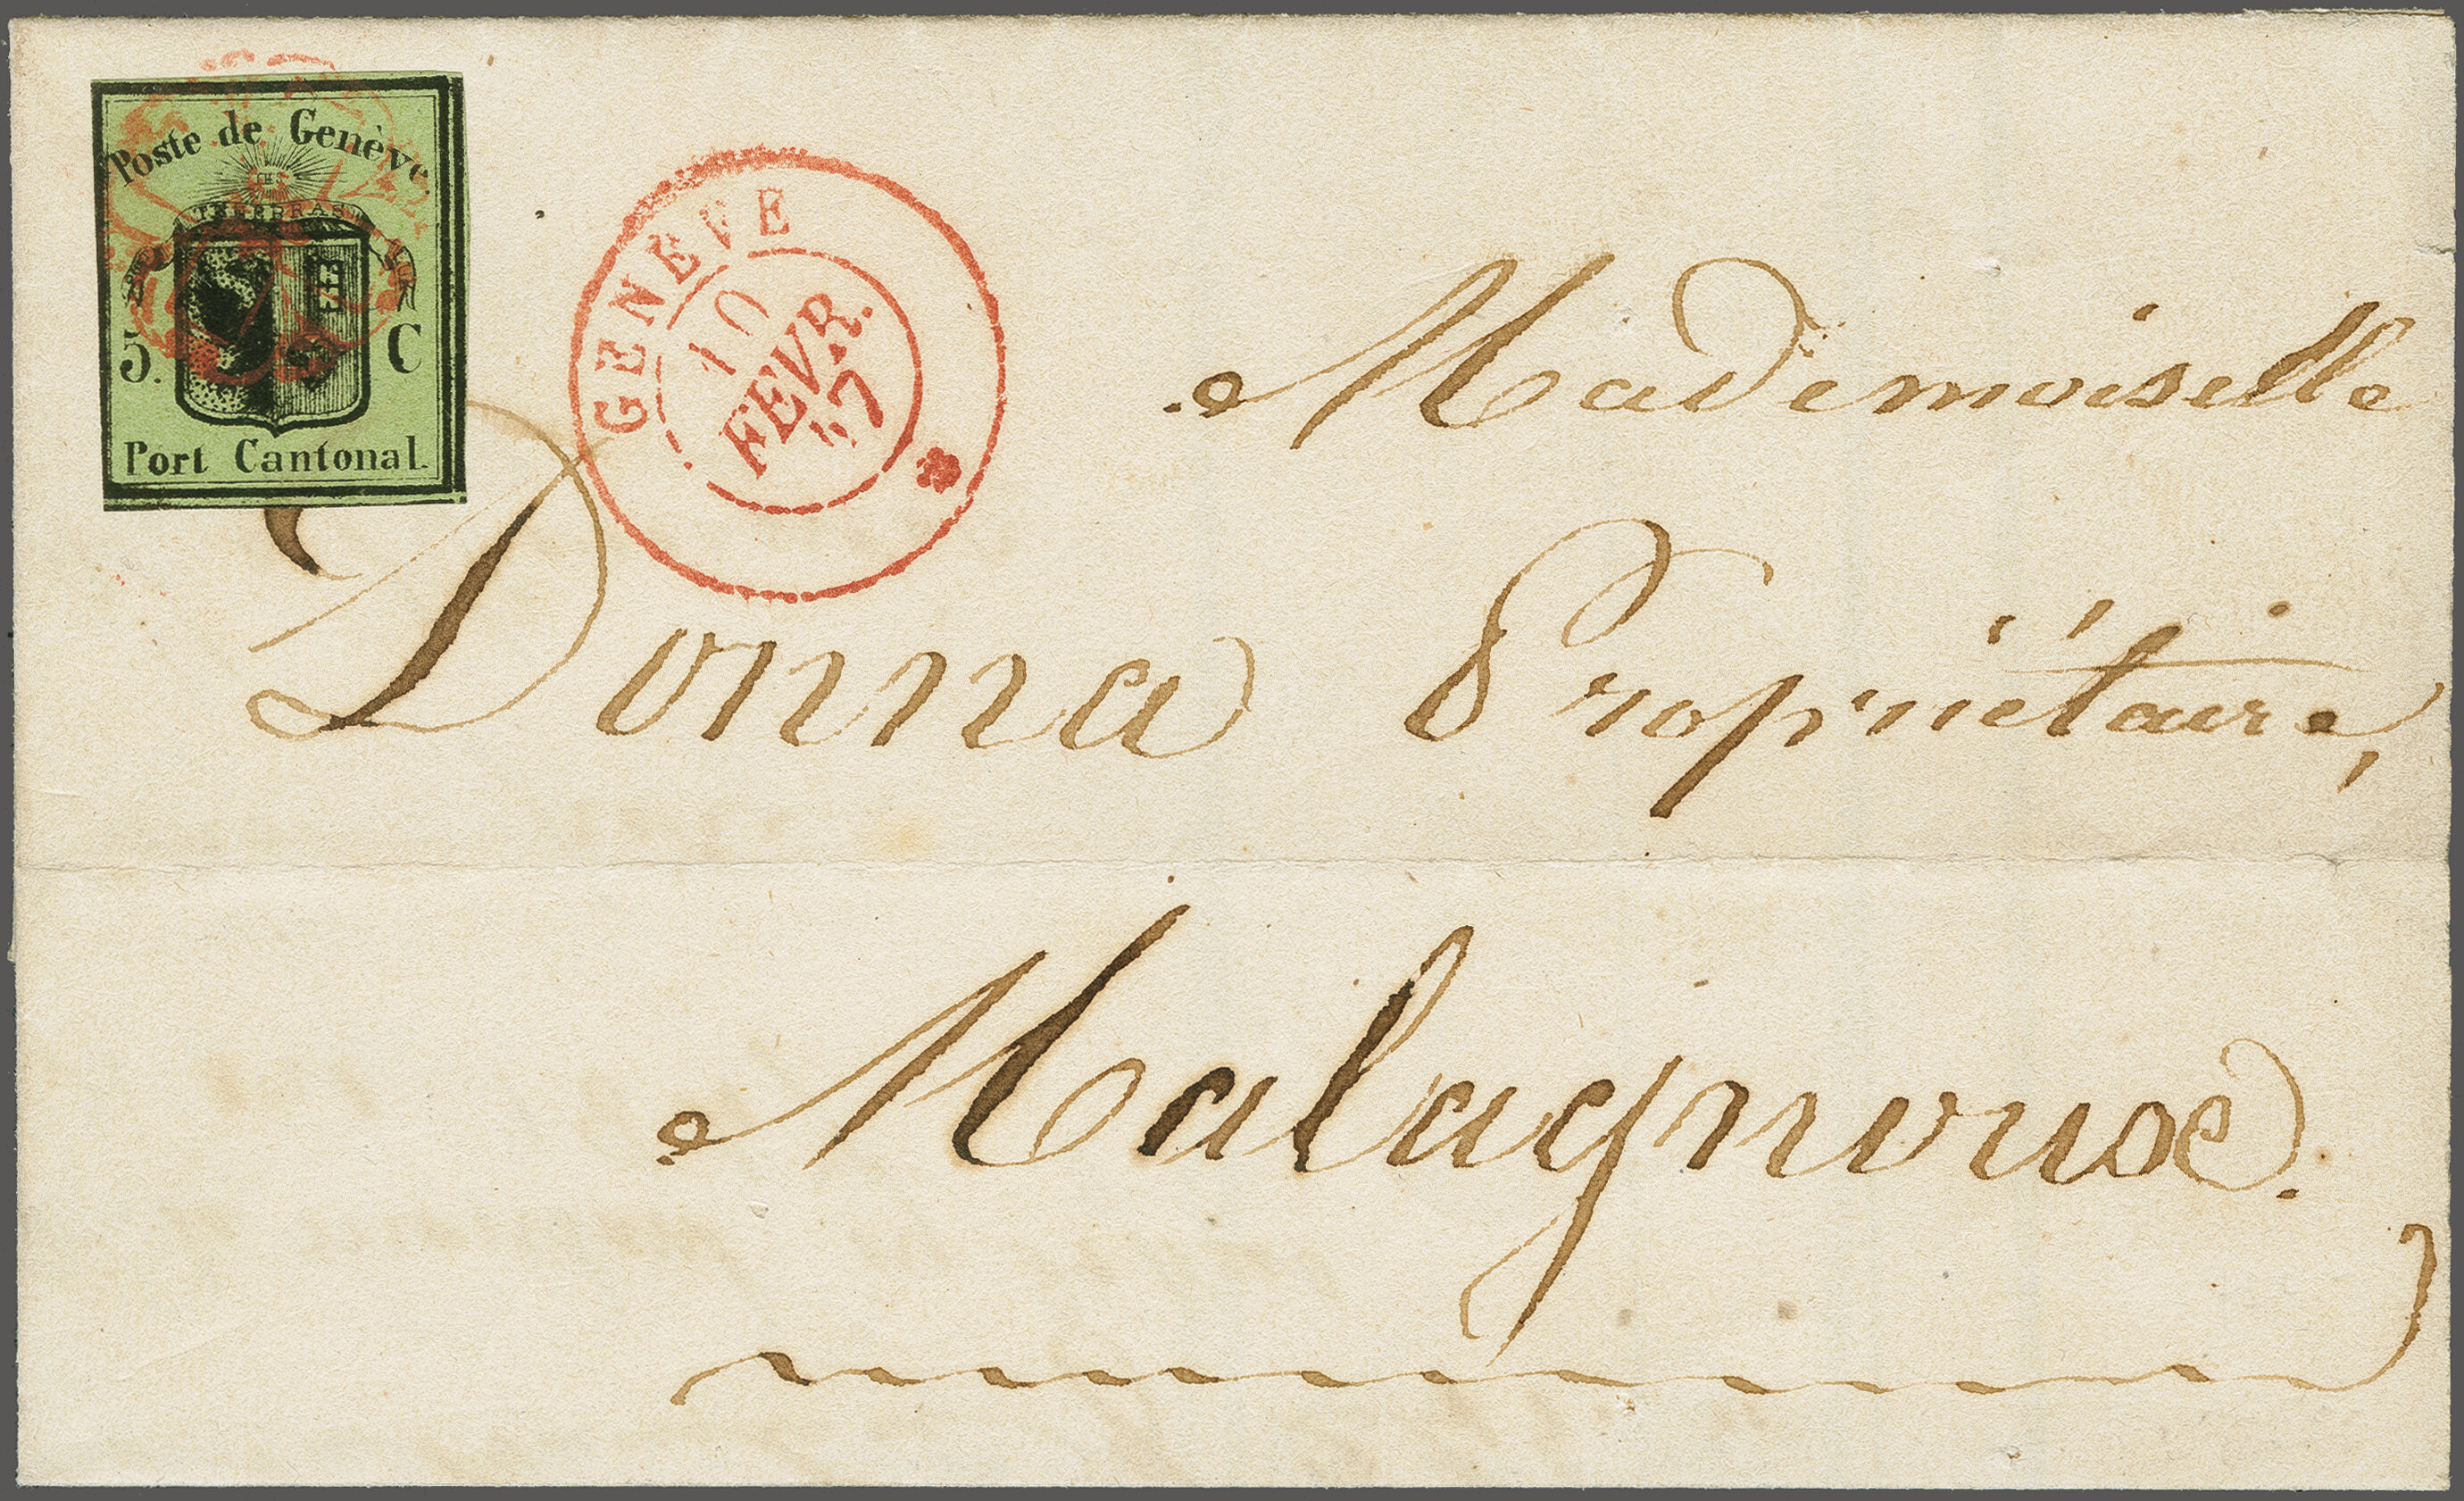 Poste de Genève.
5. C
Port Cantonal.
GENEVE
10
FEVR.
47
Mademoiselle
Donna Propriétaire,
Malagnoue.